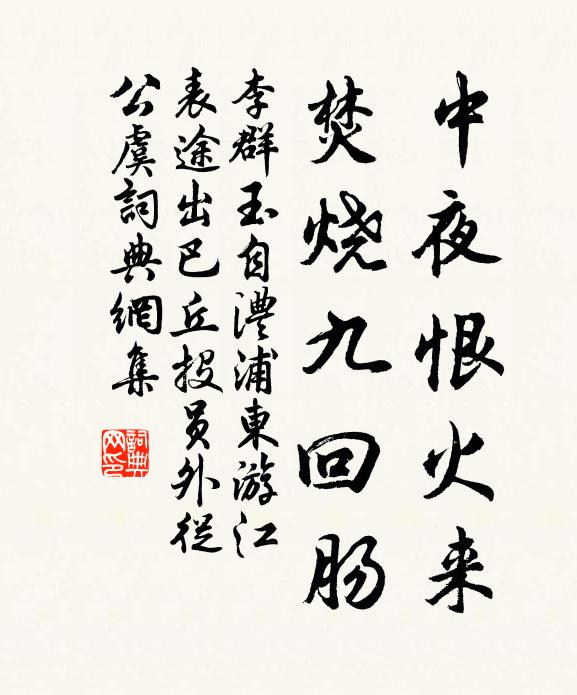 中夜恨火来
焚烧九回肠
李群玉自澧浦東游江
表途出巴丘投员外従
公虞詞典網集
詞典网印